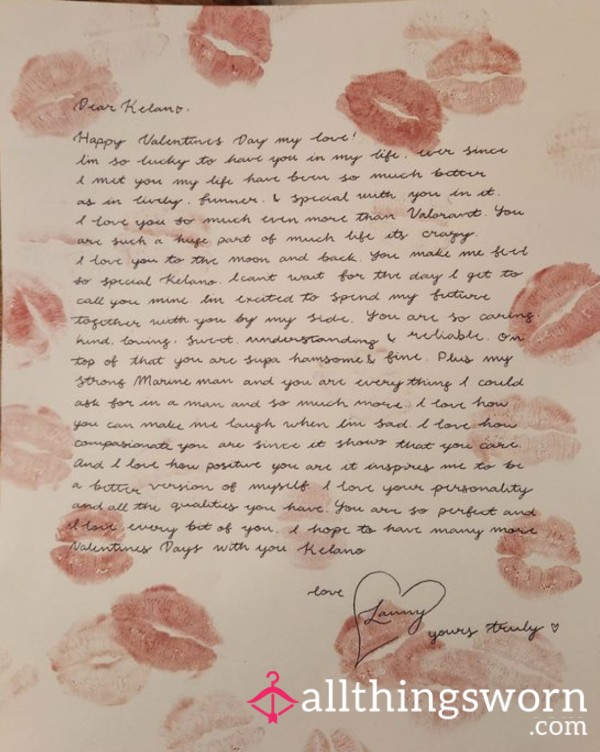 Dear Kelano.
Happy Valentines Day my love!
I'm so lucky to have you in my life. ever since
I met you my life have been so much better
as in lively, funner, & special with you in it.
I love you so much even more than Valorant. You
are such a huge part of much life its crazy.
I love you to the moon and back. You make me feel
so special Kelano. I cant wait for the day I get to
call you mine. I'm excited to spend my future
together with you by my side. You are so caring,
kind, loving, sweet, understanding & reliable. On
top of that you are supa hamsome & fine. Plus my
strong Marine man and you are everything I could
ask for in a man and so much more. I love how
you can make me laugh when I'm sad. I love how
compasionate you are since it shows that you care.
And I love how positive you are it inspires me to be
a better version of myself. I love your personality
and all the qualities you have. You are so perfect and
I love every bit of you. I hope to have many more
Valentines Days with you Kelano
love
Lanny
yours truly ♡
allthingsworn
.com